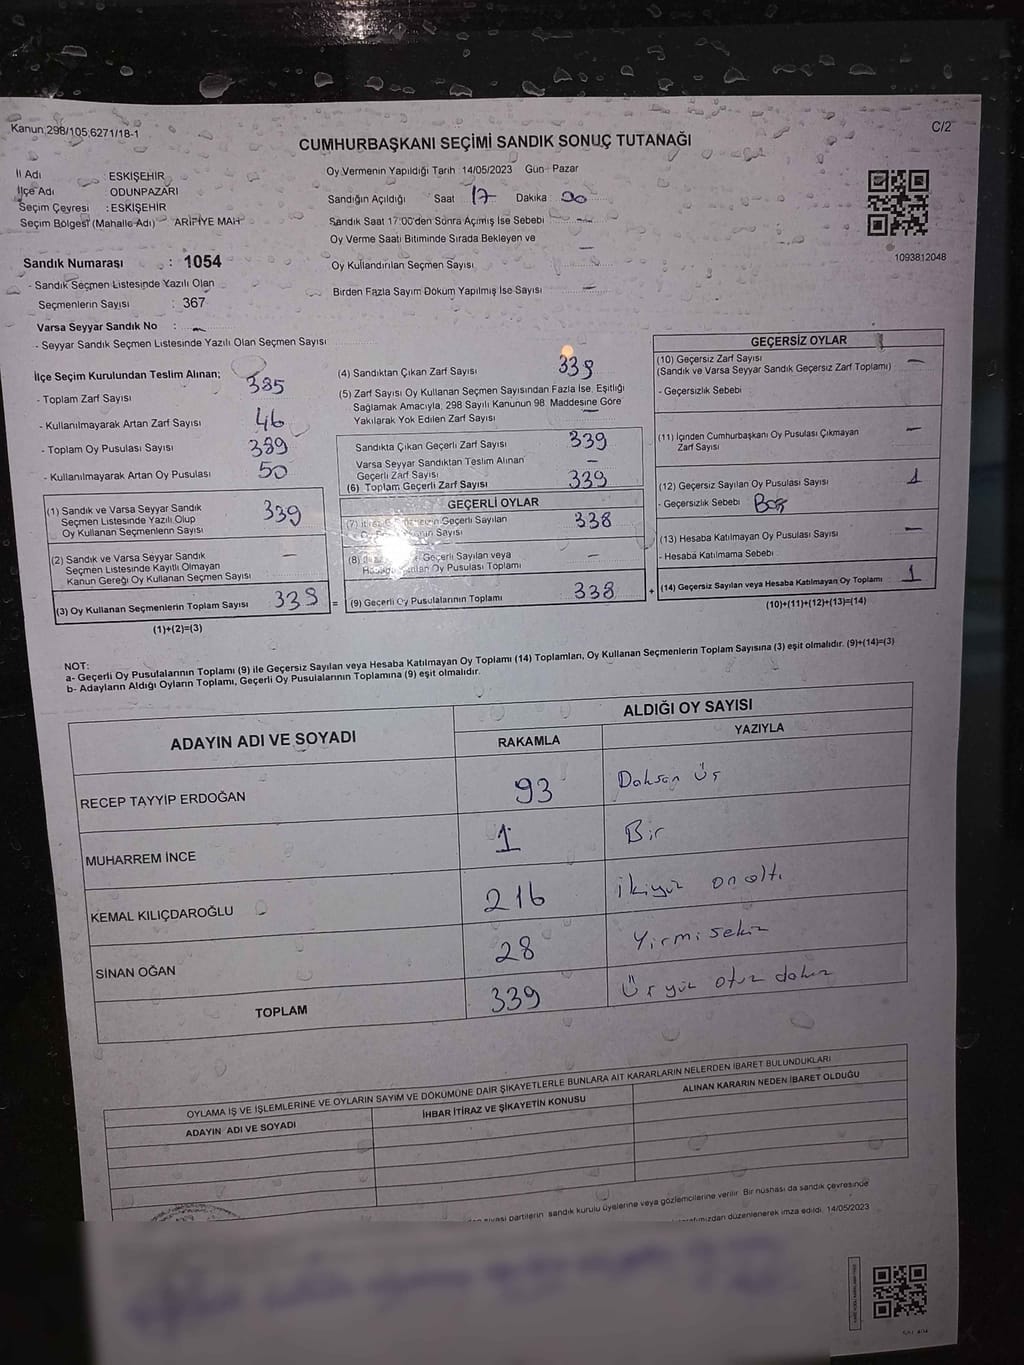 Kanun 298/105,6271/18-1
C/2
CUMHURBAŞKANI SEÇİMİ SANDIK SONUÇ TUTANAĞI
İl Adı : ESKİŞEHİR
İlçe Adı : ODUNPAZARI
Seçim Çevresi : ESKİŞEHİR
Seçim Bölgesi (Mahalle Adı) : ARİFİYE MAH
Sandık Numarası : 1054
- Sandık Seçmen Listesinde Yazılı Olan
Seçmenlerin Sayısı : 367
Varsa Seyyar Sandık No : -
- Seyyar Sandık Seçmen Listesinde Yazılı Olan Seçmen Sayısı
Oy Vermenin Yapıldığı Tarih : 14/05/2023 Gün : Pazar
Sandığın Açıldığı Saat 17 Dakika : 00
Sandık Saat 17:00'den Sonra Açımış İse Sebebi : -
Oy Verme Saati Bitiminde Sırada Bekleyen ve
Oy Kullandırılan Seçmen Sayısı -
Birden Fazla Sayım Döküm Yapılmış İse Sayısı -
1093812048
İlçe Seçim Kurulundan Teslim Alınan;
- Toplam Zarf Sayısı 385
- Kullanılmayarak Artan Zarf Sayısı 46
- Toplam Oy Pusulası Sayısı 389
- Kullanılmayarak Artan Oy Pusulası 50
(1) Sandık ve Varsa Seyyar Sandık
Seçmen Listesinde Yazılı Olup
Oy Kullanan Seçmenlerin Sayısı 339
(2) Sandık ve Varsa Seyyar Sandık
Seçmen Listesinde Kayıtlı Olmayan
Kanun Gereği Oy Kullanan Seçmen Sayısı -
(3) Oy Kullanan Seçmenlerin Toplam Sayısı 339
(1)+(2)=(3)
(4) Sandıktan Çıkan Zarf Sayısı 339
(5) Zarf Sayısı Oy Kullanan Seçmen Sayısından Fazla İse, Eşitliği
Sağlamak Amacıyla, 298 Sayılı Kanunun 98. Maddesine Göre
Yakılarak Yok Edilen Zarf Sayısı -
Sandıkta Çıkan Geçerli Zarf Sayısı 339
Varsa Seyyar Sandıktan Teslim Alınan
Geçerli Zarf Sayısı -
(6) Toplam Geçerli Zarf Sayısı 339
GEÇERLİ OYLAR
(7) Geçerli Sayılan
Sayısı 338
(8) Geçerli Sayılan veya
Oy Pusulası Toplamı -
= (9) Geçerli Oy Pusulalarının Toplamı 338 +
GEÇERSİZ OYLAR
(10) Geçersiz Zarf Sayısı
(Sandık ve Varsa Seyyar Sandık Geçersiz Zarf Toplamı) -
- Geçersizlik Sebebi
(11) İçinden Cumhurbaşkanı Oy Pusulası Çıkmayan
Zarf Sayısı -
(12) Geçersiz Sayılan Oy Pusulası Sayısı 1
- Geçersizlik Sebebi : Boş
(13) Hesaba Katılmayan Oy Pusulası Sayısı -
- Hesaba Katılmama Sebebi
(14) Geçersiz Sayılan veya Hesaba Katılmayan Oy Toplamı 1
(10)+(11)+(12)+(13)=(14)
NOT:
a- Geçerli Oy Pusulalarının Toplamı (9) ile Geçersiz Sayılan veya Hesaba Katılmayan Oy Toplamı (14) Toplamları, Oy Kullanan Seçmenlerin Toplam Sayısına (3) eşit olmalıdır. (9)+(14)=(3)
b- Adayların Aldığı Oyların Toplamı, Geçerli Oy Pusulalarının Toplamına (9) eşit olmalıdır.
ADAYIN ADI VE SOYADI
ALDIĞI OY SAYISI
RAKAMLA YAZIYLA
RECEP TAYYİP ERDOĞAN 93 Doksan Üç
MUHARREM İNCE 1 Bir
KEMAL KILIÇDAROĞLU 216 ikiyüz onaltı
SİNAN OĞAN 28 Yirmi sekiz
TOPLAM 339 Üçyüz otuz dokuz
OYLAMA İŞ VE İŞLEMLERİNE VE OYLARIN SAYIM VE DÖKÜMÜNE DAİR ŞİKAYETLERLE BUNLARA AİT KARARLARIN NELERDEN İBARET BULUNDUKLARI
ADAYIN ADI VE SOYADI İHBAR İTİRAZ VE ŞİKAYETİN KONUSU ALINAN KARARIN NEDEN İBARET OLDUĞU
siyasi partilerin sandık kurulu üyelerine veya gözlemcilerine verilir. Bir nüshası da sandık çevresinde
düzenlenerek imza edildi. 14/05/2023